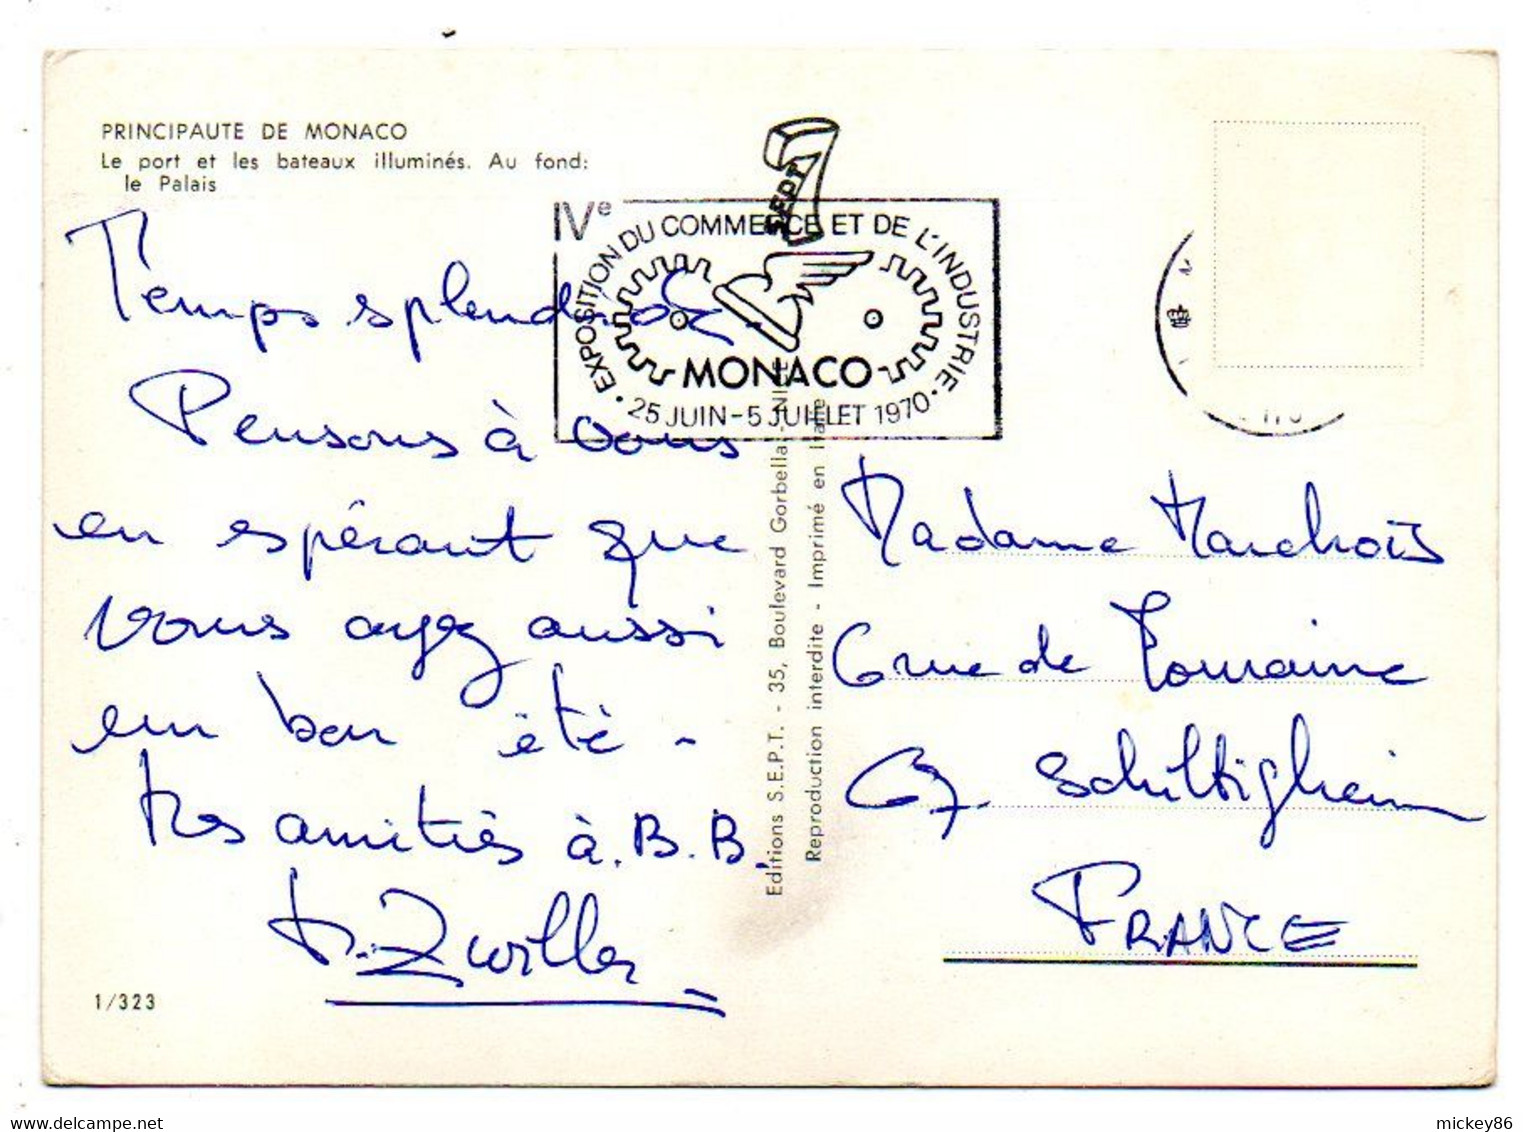 PRINCIPAUTE DE MONACO
Le port et les bateaux illuminés. Au fond:
le Palais
SEPT
IVe
EXPOSITION DU COMMERCE ET DE L'INDUSTRIE
MONACO
25 JUIN - 5 JUILLET 1970
Temps splendide.
Pensons à vous
en espérant que
vous ayez aussi
un bon été -
Nos amitiés à B.B.
Zwiller
1/323
Editions S.E.P.T. - 35, Boulevard Gorbella - NICE
Reproduction interdite - Imprimé en Italie
Madame Marchois
6 rue de Lorraine
67. Schiltigheim
FRANCE
delcampe.net
mickey86